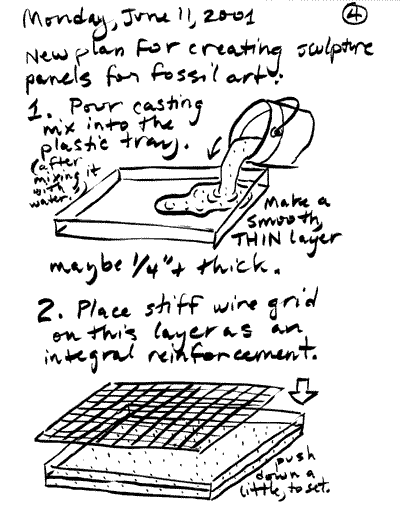 Monday, June 11, 2001
4
New plan for creating sculpture
panels for fossil art.
1. Pour casting
mix into the
plastic tray.
(after
mixing it
with
water.)
Make a
smooth,
THIN layer
maybe 1/4"+ thick.
2. Place stiff wire grid
on this layer as an
integral reinforcement.
push
down a
little, to set.